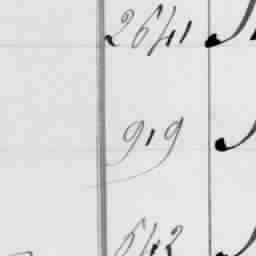 2641
919
642